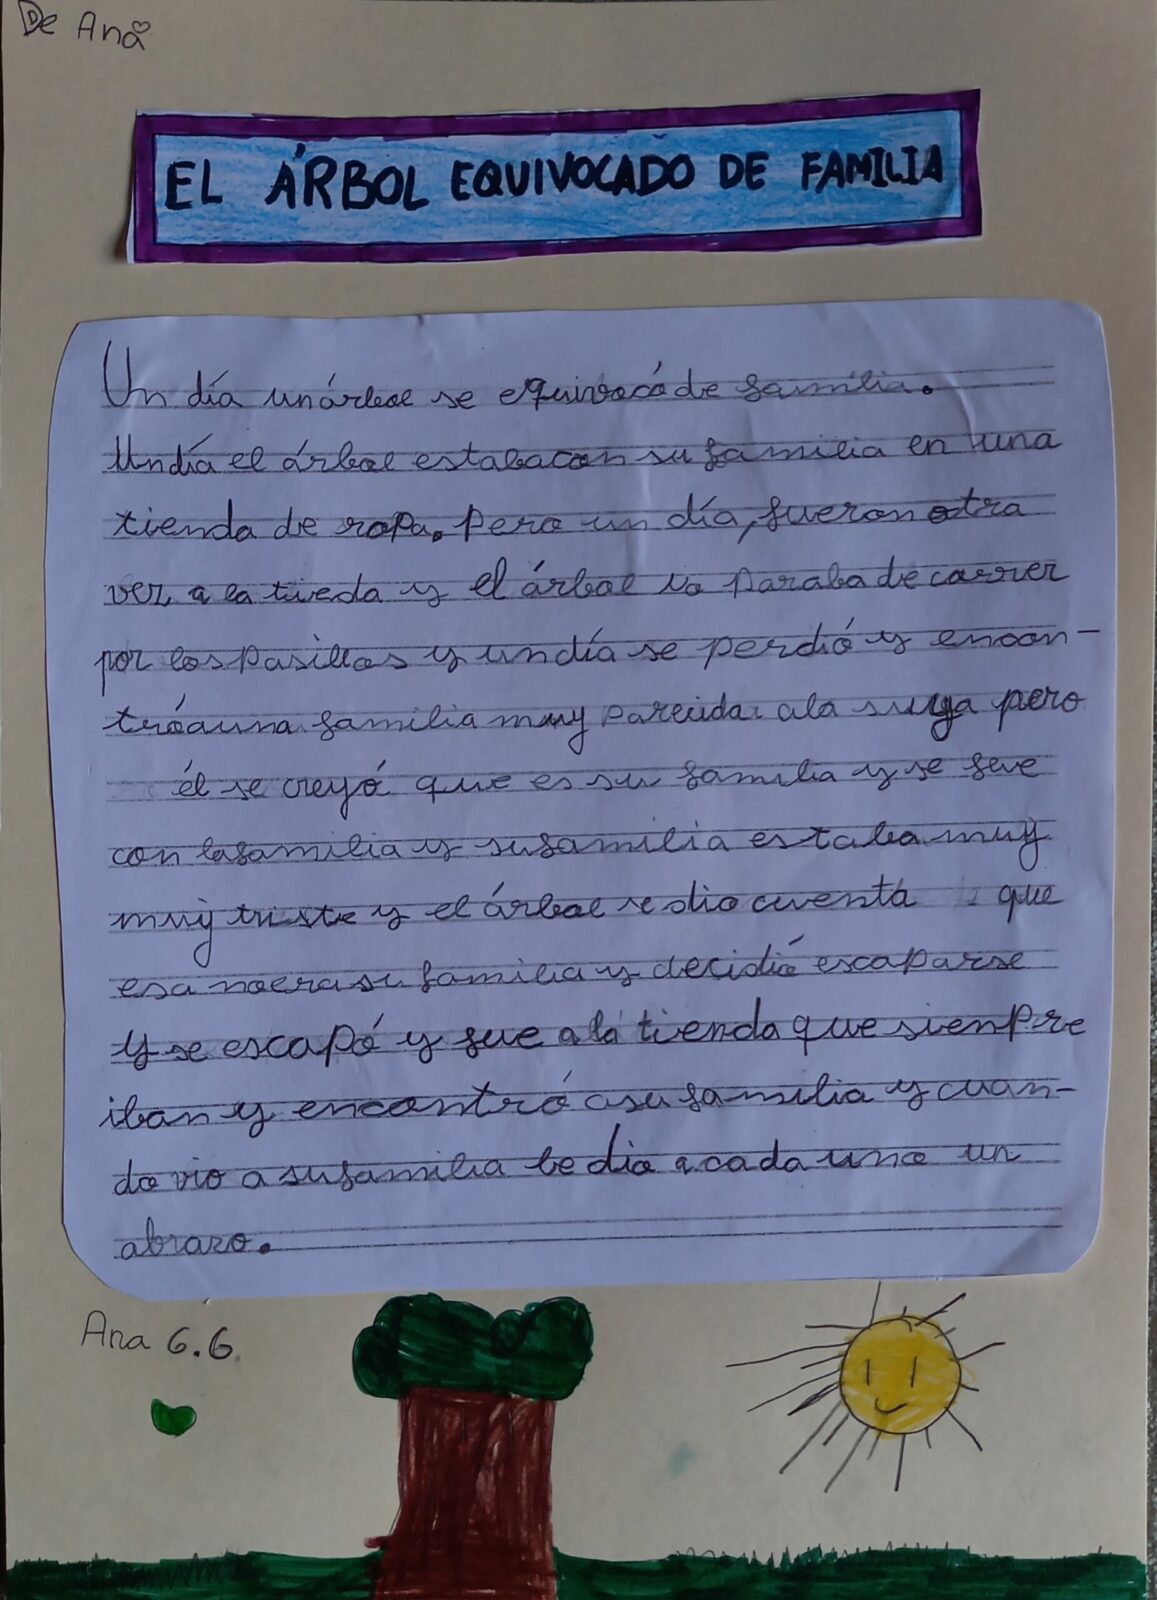 De Ana
EL ÁRBOL EQUIVOCADO DE FAMILIA
Un día un árbol se equivocó de familia.
Un día el árbol estaba con su familia en una
tienda de ropa. Pero un día, fueron otra
vez a la tieda y el árbol no paraba de correr
por los pasillos y un día se perdió y encon-
tró a una familia muy parecida a la suya pero
él se creyó que es su familia y se feve
con la familia y su familia estaba muy
muy triste y el árbol se dio cuenta que
esa no era su familia y decidió escaparse
y se escapó y fue a la tienda que sienpre
iban y encontró a su familia y cuan-
do vio a su familia le dio a cada uno un
abrazo.
Ana G.G.